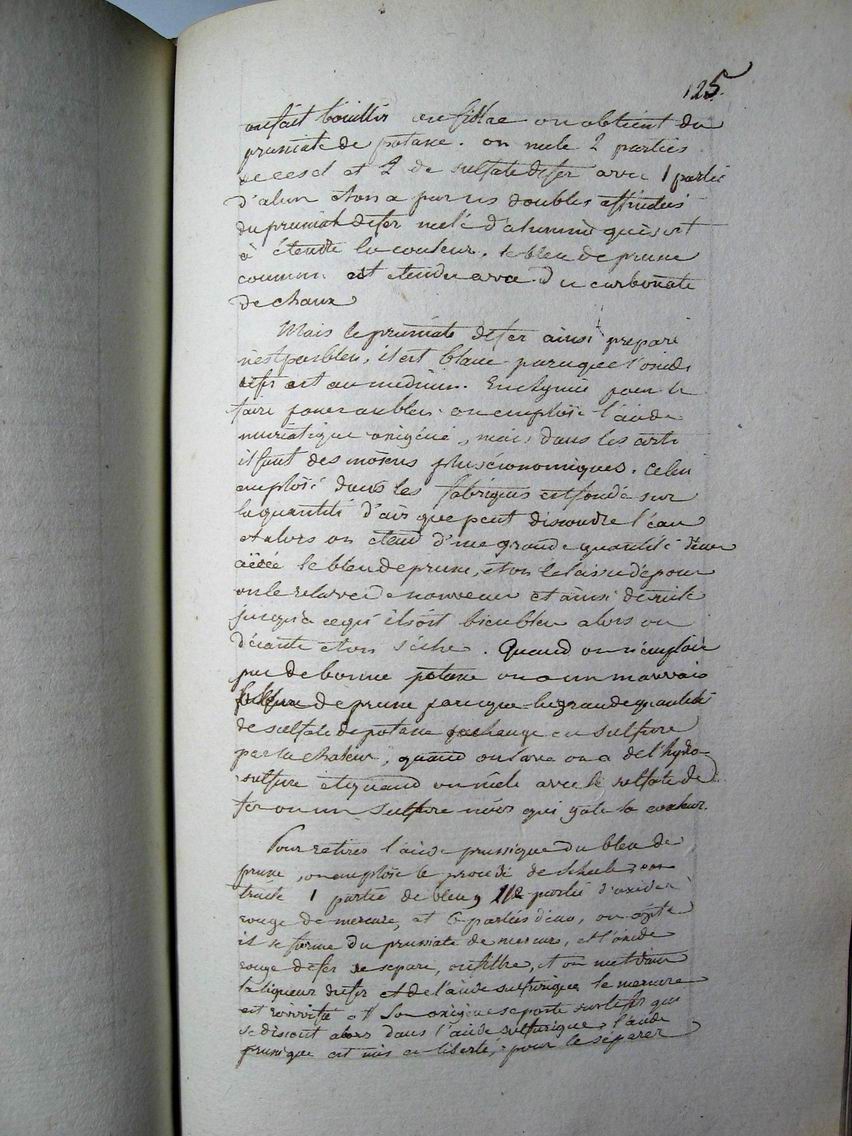 125
on fait bouillir on filtre on obtient du
prussiate de potasse. on mele 2 parties
de ce sel et 2 de sulfate de fer avec 1 partie
d'alun et on a par les doubles affinités
du prussiate de fer melé d'alumine qui sert
à étendre la couleur. le bleu de prusse
commun est etendu avec du carbonate
de chaux
Mais le prussiate de fer ainsi préparé
n'est pas bleu, il est blanc parceque l'oxide
de fer est au minium. En chymie pour le
faire passer au bleu on emploie l'acide
muriatique oxigéné, mais dans les arts
il faut des moiens plus économiques. Celui
emploié dans les fabriques est fondé sur
la quantité d'air que peut dissoudre l'eau
et alors on étend d'une grande quantité d'eau
aërée le bleu de prusse, et on le laisse déposer
on le relave de nouveau et ainsi de suite
jusqu'à ce qu'il soit bien bleu alors on
décante et on sèche. Quand on n'emploie
pas de bonne potasse on a un mauvais
bleu de prusse parceque la grande quantité
de sulfate de potasse se change en sulfure
par la chaleur, quand on lave on a de l'hydro-
sulfure et quand on mêle avec le sulfate de
fer on a un sulfure noir qui gâte la couleur.
Pour retirer l'acide prussique du bleu de
prusse, on emploie le procédé de Scheele on
traite 1 partie de bleu, 1/2 partie d'oxide
rouge de mercure, et 6 parties d'eau, on agite
il se forme du prussiate de mercure, et l'oxide
rouge de fer se separe, on filtre, et on met dans
la liqueur du fer et de l'acide sulfurique le mercure
est revivifié et son oxigène se porte sur le fer qui
se dissout alors dans l'acide sulfurique, l'acide
prussique est mis en liberté, pour le séparer